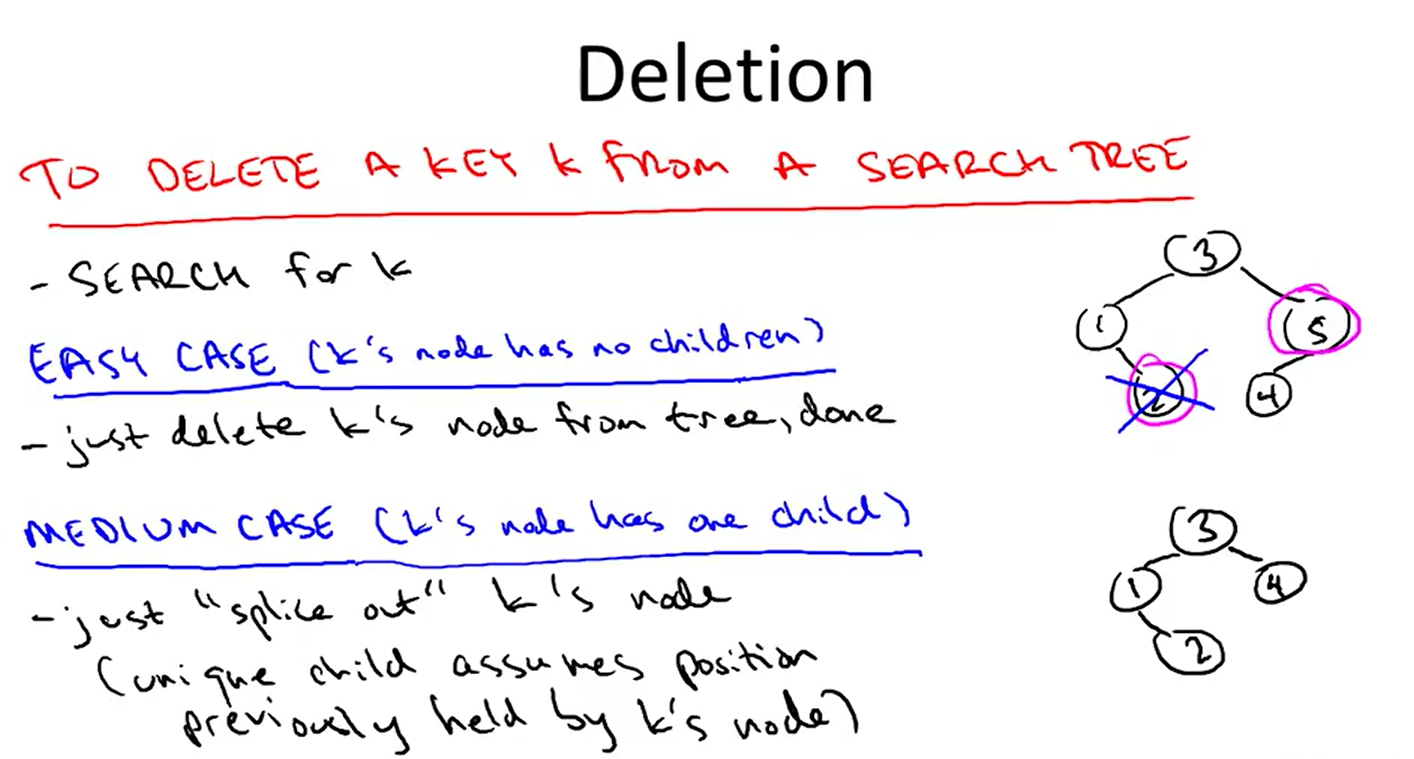 Deletion
TO DELETE A KEY k FROM A SEARCH TREE
- SEARCH for k
EASY CASE (k's node has no children)
- just delete k's node from tree, done
MEDIUM CASE (k's node has one child)
- just "splice out" k's node
(unique child assumes position
previously held by k's node)
3
1 5
2 4
3
1 4
2